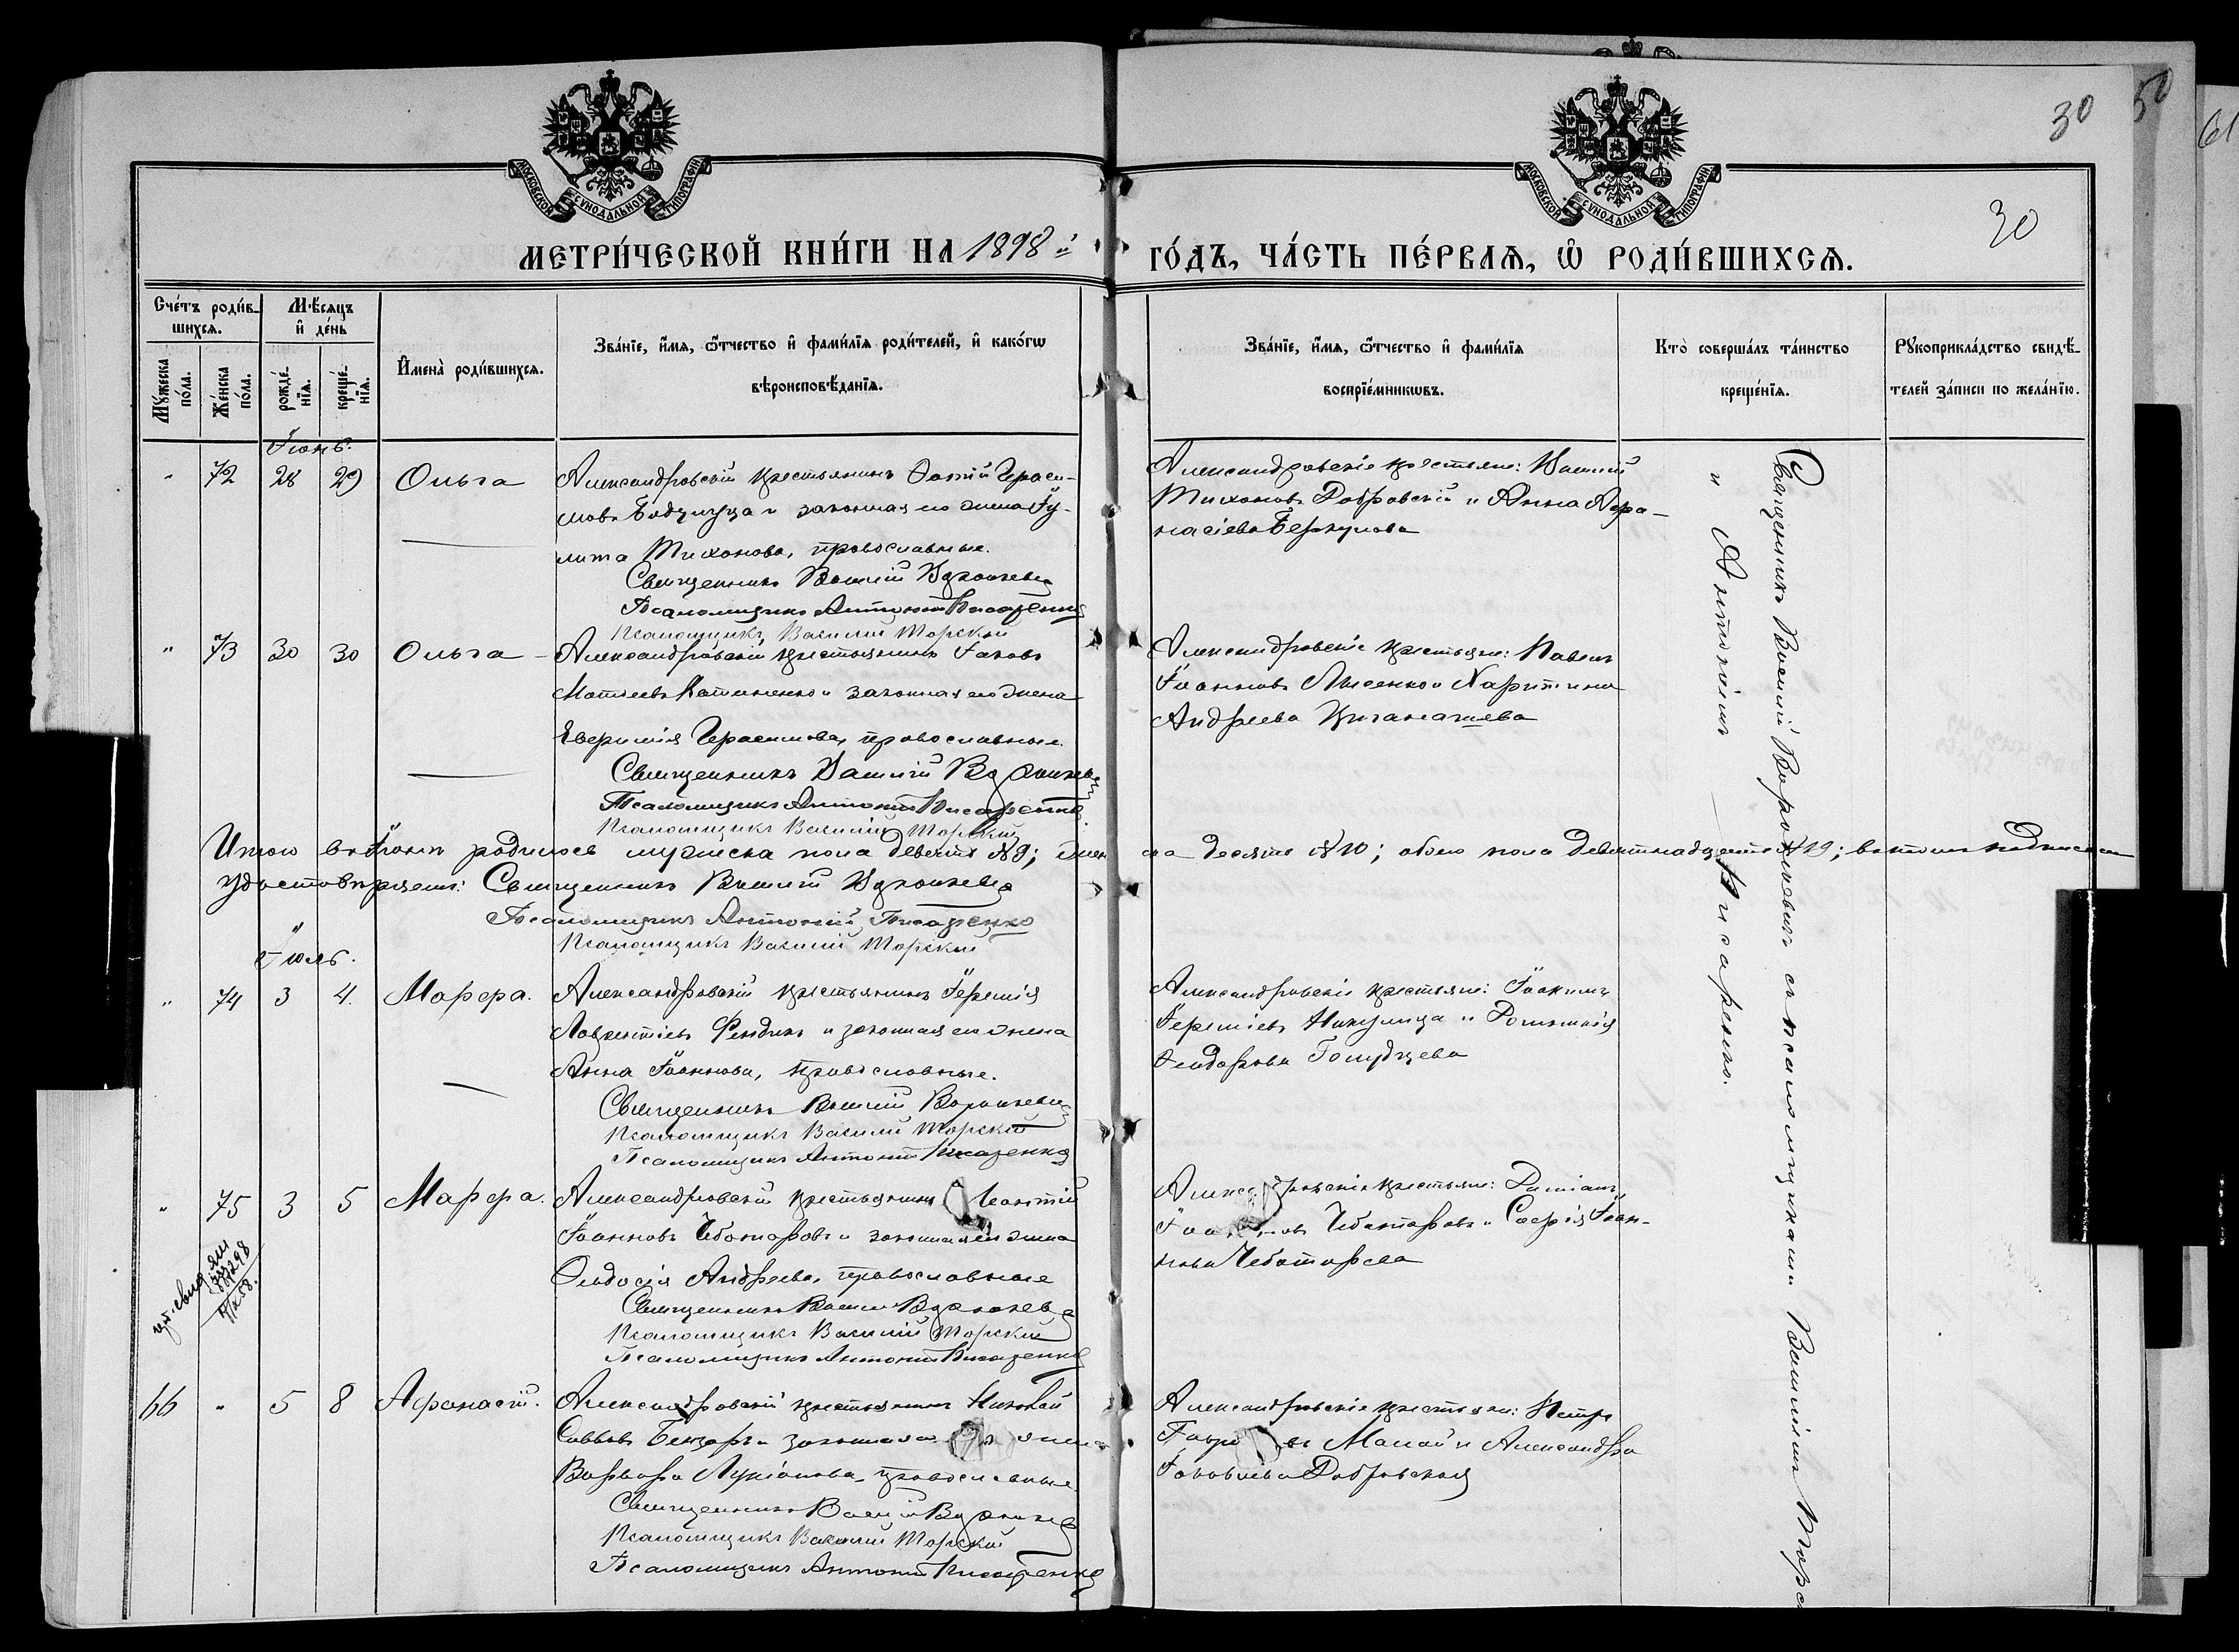 30
50
61
МОСКОВСКОЙ СѴНОДАЛЬНОЙ ТИПОГРАФІИ
МОСКОВСКОЙ СѴНОДАЛЬНОЙ ТИПОГРАФІИ
30
МЕТРИ́ЧЕСКОЙ КНИ́ГИ НА 1898 й
ГО́ДЪ, ЧА́СТЬ ПЕ́РВАѦ, Ѡ҆ РОДИ́ВШИХСѦ.
Сче́тъ роди́в-
шихсѧ.
Мꙋ́жеска по́ла.
Же́нска по́ла.
Мѣ́сѧцъ
и҆ де́нь
рожде́-
нїѧ.
креще́-
нїѧ.
И҆мена̀ роди́вшихсѧ.
Зва́нїе, и҆́мѧ, ѻ҆́тчество и҆ фами́лїѧ роди́телей, и҆ како́гѡ
вѣроисповѣ́данїѧ.
Зва́нїе, и҆́мѧ, ѻ҆́тчество и҆ фами́лїѧ
воспрїе́мникѡвъ.
Кто̀ соверша́лъ та́инство
креще́нїѧ.
Рꙋкоприкла́дство свидѣ́-
телей за́писи по жела́нїю.
Іюнь.
" 72 28 29 Ольга
Александровскій крестьянинъ Фотій Гераси-
мовъ и законная его жена Іу-
лита Тихонова, православные.
Священникъ Василій
Псаломщикъ Антоній Писаренко
Псаломщикъ Василій Торскій
Александровскіе крестьяне: Василій
Тихоновъ Добровскій и Анна Афа-
насіева Беркунова
" 73 30 30 Ольга
Александровскій крестьянинъ Іаковъ
Матѳеевъ и законная его жена
Евфимія Герасимова, православные.
Священникъ Василій
Псаломщикъ Антоній Писаренко
Псаломщикъ Василій Торскій
Александровскіе крестьяне: Павелъ
Іоанновъ Лысенко и Харитина
Андреева
Итого въ Іюнѣ родилось мужеска пола девять №9; женска десять №10; обоего пола девятнадцать №19; въ томъ подписомъ
удостовѣряемъ: Священникъ Василій
Псаломщикъ Антоній Писаренко
Псаломщикъ Василій Торскій
Іюль.
" 74 3 4. Марфа.
Александровскій крестьянинъ Іеремія
Лаврентіевъ Фендикъ и законная его жена
Анна Іоаннова, православные.
Священникъ Василій
Псаломщикъ Василій Торскій
Псаломщикъ Антоній Писаренко
Александровскіе крестьяне: Іоакимъ
Іереміевъ и Домникія
Ѳеодорова
" 75 3 5 Марфа.
Александровскій крестьянинъ Леонтій
Іоанновъ Чеботаровъ и законная его жена
Ѳеодосія Андреева, православные
Священникъ Василій
Псаломщикъ Василій Торскій
Псаломщикъ Антоній Писаренко
Александровскіе крестьяне: Даміанъ
Іоанновъ Чеботаровъ и Софія Іоан-
нова Чеботарева
66 " 5 8 Афанасій.
Александровскій крестьянинъ Николай
Саввовъ и законная его жена
Варвара Лукіанова, православные
Священникъ Василій
Псаломщикъ Василій Торскій
Псаломщикъ Антоній Писаренко
Александровскіе крестьяне: Петръ
Малай и Александра
Іаковлева Добровская
Священникъ Василій съ псаломщиками Василіемъ Торск
и Антоніемъ Писаренко.